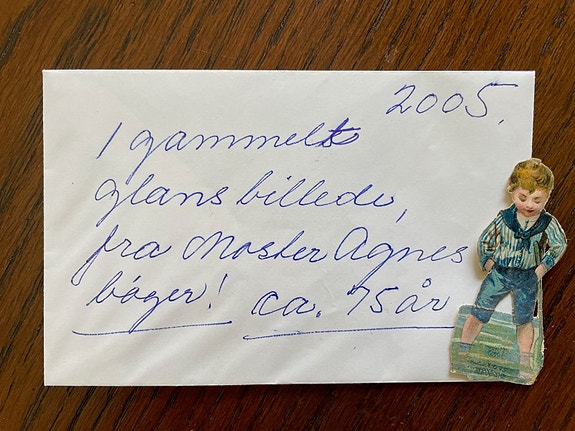 2005.
1 gammelt
glansbillede,
fra Moster Agnes
bøger! ca. 75 år